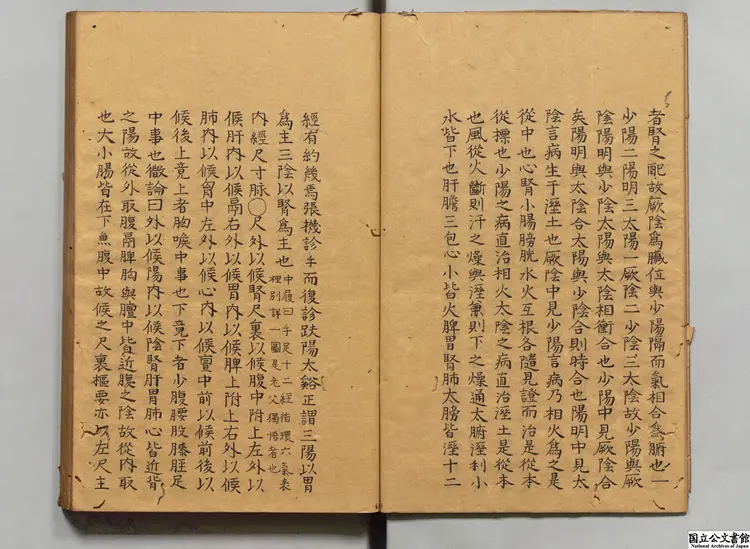 者腎之配故厥陰為臓位與少陽隔而氣相合為腑也一
少陽二陽明三太陽一厥陰二少陰三太陰故少陽與厥
陰陽明與少陰太陽與太陰相衝合也少陽中見厥陰合
矣陽明與太陰合太陽與少陰合則時合也陽明中見太
陰言病生于溼土也厥陰中見少陽言病乃相火為之是
從中也心腎小腸膀胱水火互根各隨見證而治是從本
從標也少陽之病直治相火太陰之病直治溼土是從本
也風從火斷則汗之燥與溼兼則下之燥通太腑溼利小
水皆下也肝膽三包心小皆火脾胃腎肺太膀皆溼十二
經有約幾焉張機診手而復診趺陽太谿正謂三陽以胃
為主三陰以腎為主也中履曰手足十二經循環六氣表
裡別詳一圖是老父獨悟者也
內經尺寸脉○尺外以候腎尺裏以候腹中附上左外以
候肝內以候鬲右外以候胃內以候脾上附上右外以候
肺內以候胷中左外以候心內以候亶中前以候前後以
候後上竟上者胸喉中事也下竟下者少腹腰股膝脛足
中事也微論曰外以候陽內以候陰腎肝胃肺心皆近背
之陽故從外取腹鬲脾胸與膻中皆近腹之陰故從內取
也大小腸皆在下魚腹中故候之尺裏樞要亦以左尺主
国立公文書館
National Archives of Japan